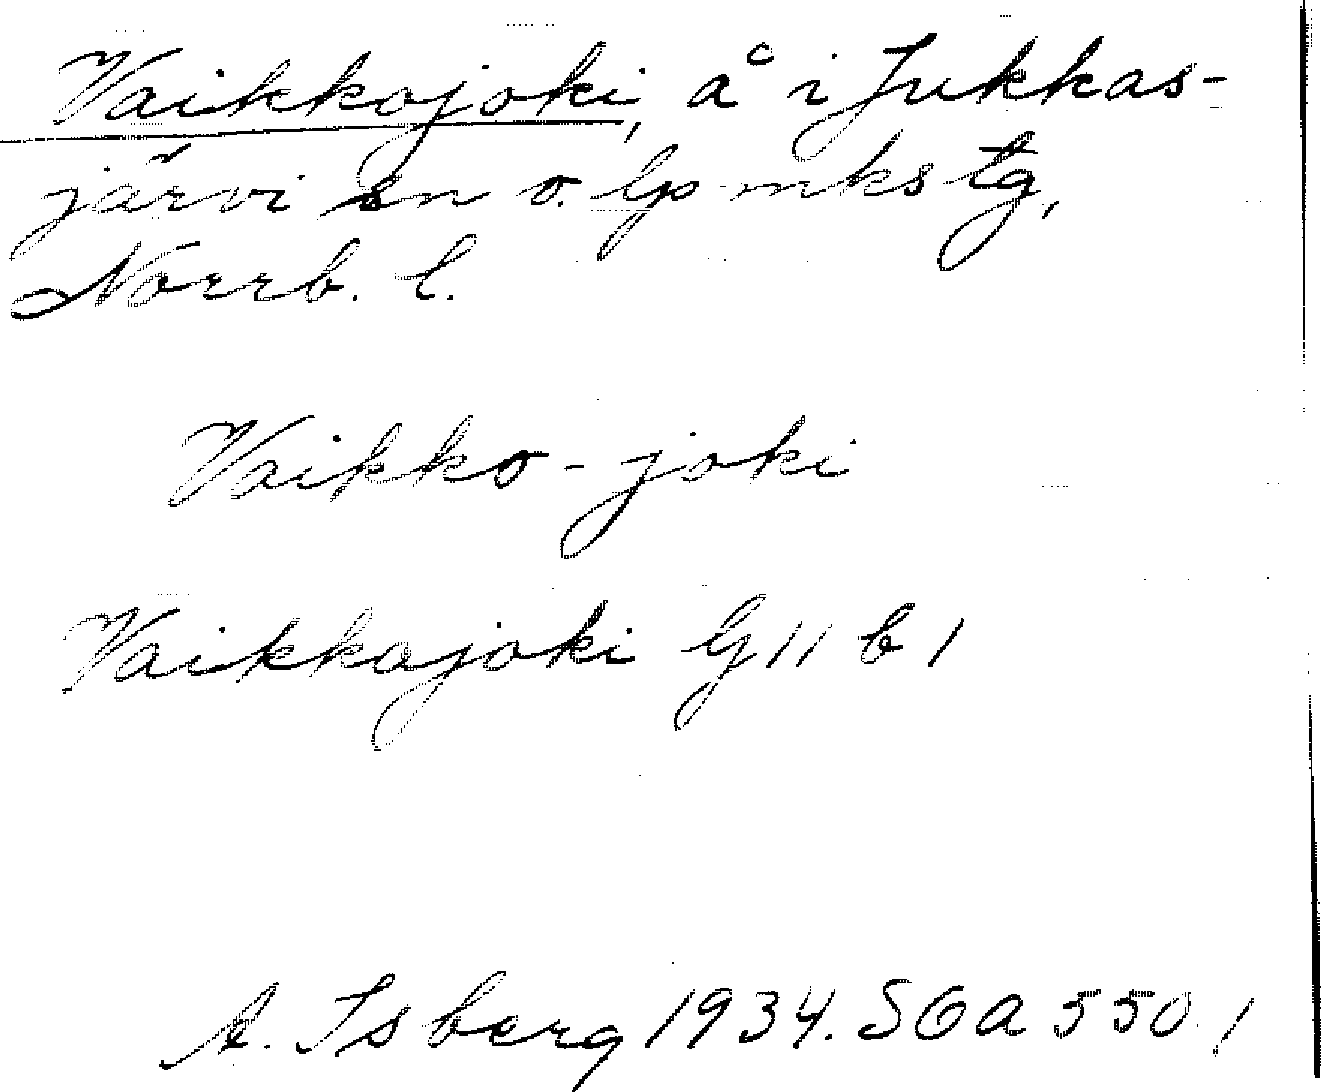 Vaikkojoki, å i Jukkas-
järvi sn o. lpmks tg,
Norrb. l.
Vaikko-joki
Vaikkojoki G 11 b 1
A. Isberg 1934. SOA 550.1